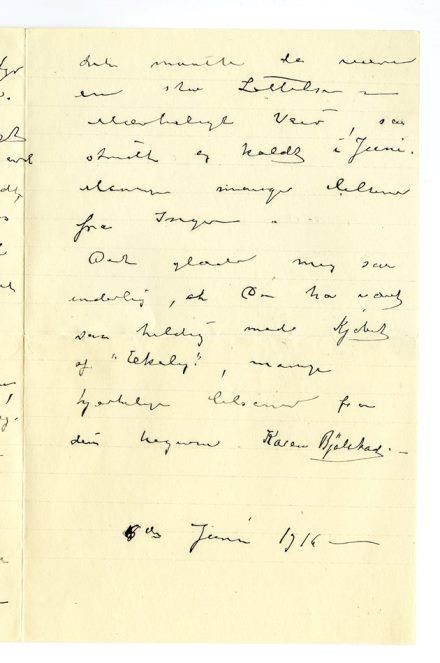 det maatte da være
en stor Lettelse –
Mærkeligt Veir, saa
stridt og koldt i Juni.
Mange mange hilsener
fra Inger –
Det glæder mig saa
inderlig, at Du har været
saa heldig med Kjøbet
af "Ekely", mange
hjertelige hilsener fra
din hengivne Karen Bjølstad. –
6te Juni 1916 —